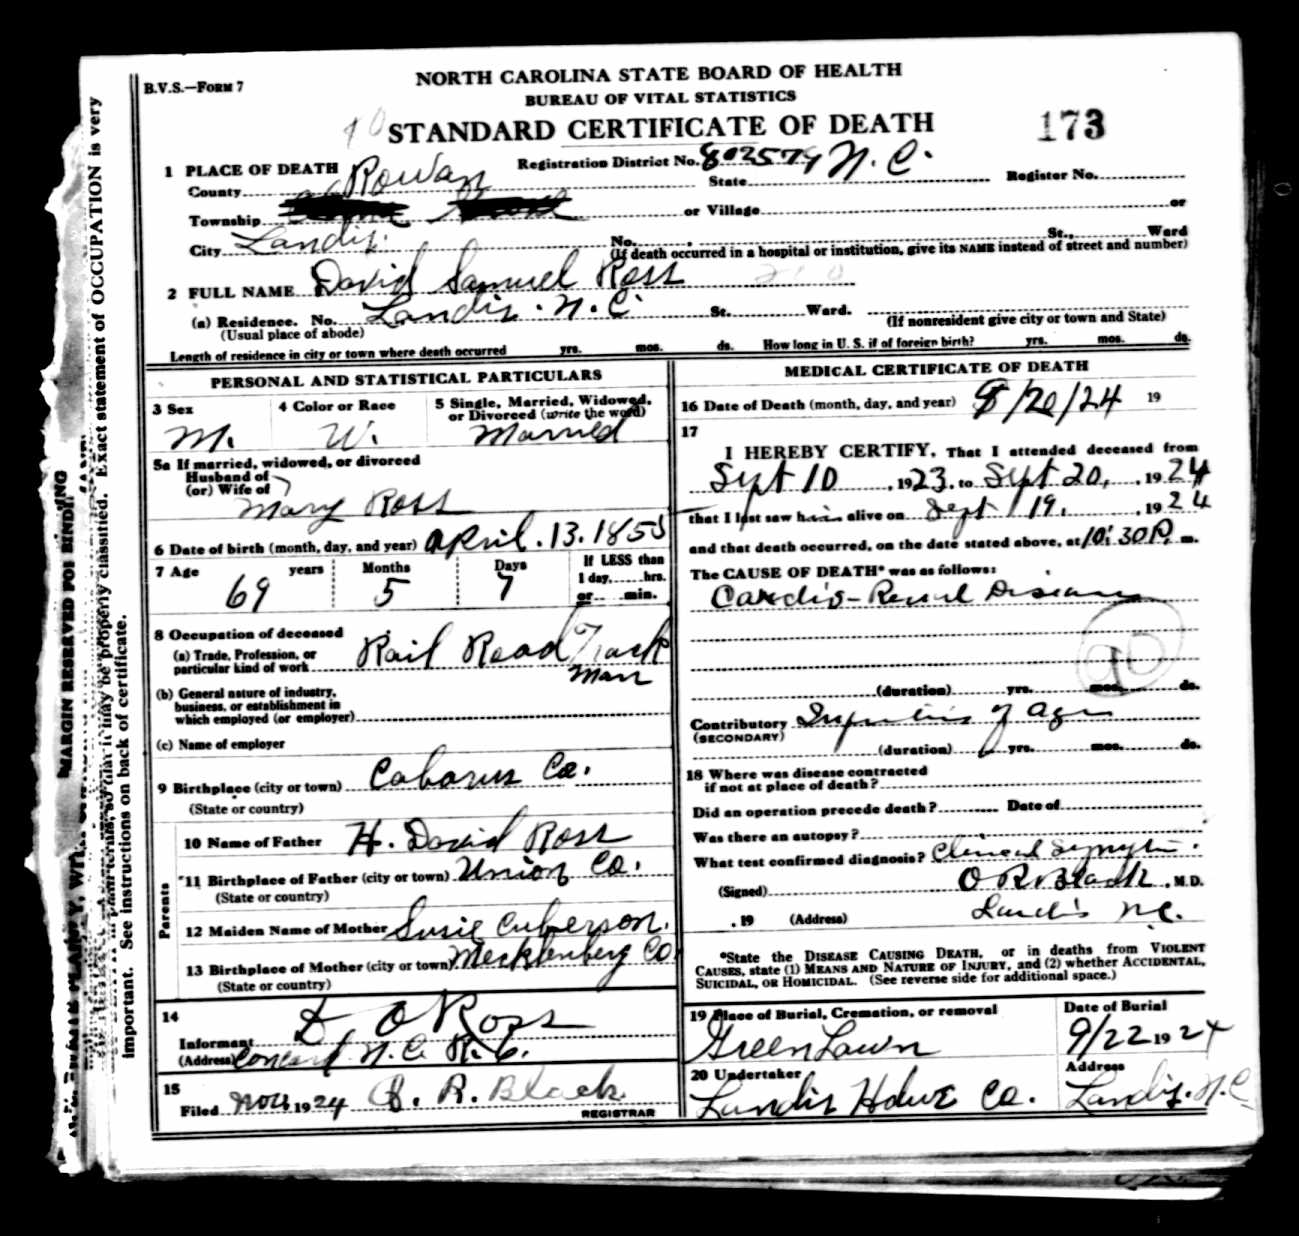 B.V.S.—Form 7
NORTH CAROLINA STATE BOARD OF HEALTH
BUREAU OF VITAL STATISTICS
STANDARD CERTIFICATE OF DEATH
173
1 PLACE OF DEATH
Registration District No. 802579
County Rowan
State N. C.
Register No.
Township
or Village
or
City Landis.
No.
St.,
Ward
(If death occurred in a hospital or institution, give its NAME instead of street and number)
2 FULL NAME David Samuel Ross
(a) Residence. No. Landis. N. C.
St.
Ward.
(Usual place of abode)
(If nonresident give city or town and State)
Length of residence in city or town where death occurred yrs. mos. ds. How long in U. S. if of foreign birth? yrs. mos. ds.
PERSONAL AND STATISTICAL PARTICULARS
3 Sex
4 Color or Race
5 Single, Married, Widowed, or Divorced (write the word)
M.
W.
Married
5a If married, widowed, or divorced
Husband of
(or) Wife of
Mary Ross
6 Date of birth (month, day, and year) April. 13. 1855
7 Age
years
Months
Days
If LESS than
1 day, hrs.
or min.
69
5
7
8 Occupation of deceased
(a) Trade, Profession, or
particular kind of work Rail Road Track
Man
(b) General nature of industry,
business, or establishment in
which employed (or employer)
(c) Name of employer
9 Birthplace (city or town) Cabarus Co.
(State or country)
Parents
10 Name of Father H. David Ross
11 Birthplace of Father (city or town) Union Co.
(State or country)
12 Maiden Name of Mother Susie Culperson.
13 Birthplace of Mother (city or town) Mecklenberg Co.
(State or country)
14
Informant D O Ross
(Address) Concord N. C. R. 6.
15
Filed Nov 1924 R. Black
REGISTRAR
MEDICAL CERTIFICATE OF DEATH
16 Date of Death (month, day, and year) 9/20/24 19
17
I HEREBY CERTIFY, That I attended deceased from
Sept 10, 1923, to Sept 20, , 1924
that I last saw him alive on Sept 19. , 1924
and that death occurred, on the date stated above, at 10:30 P. m.
The CAUSE OF DEATH* was as follows:
Cardio-Renal Disease
90
(duration) yrs. mos. ds.
Contributory
(SECONDARY)
of age
(duration) yrs. mos. ds.
18 Where was disease contracted
if not at place of death?
Did an operation precede death? Date of
Was there an autopsy?
What test confirmed diagnosis? Clinical Symptm.
(Signed) Black, M.D.
, 19 (Address) Landis N.C.
*State the DISEASE CAUSING DEATH, or in deaths from VIOLENT
CAUSES, state (1) MEANS AND NATURE OF INJURY, and (2) whether ACCIDENTAL,
SUICIDAL, OR HOMICIDAL. (See reverse side for additional space.)
19 Place of Burial, Cremation, or removal
Date of Burial
Green Lawn
9/22 1924
20 Undertaker
Address
Landis Hdwe Co.
Landis. N. C
MARGIN RESERVED FOR BINDING
may be properly classified. Exact statement of OCCUPATION is very
important. See instructions on back of certificate.